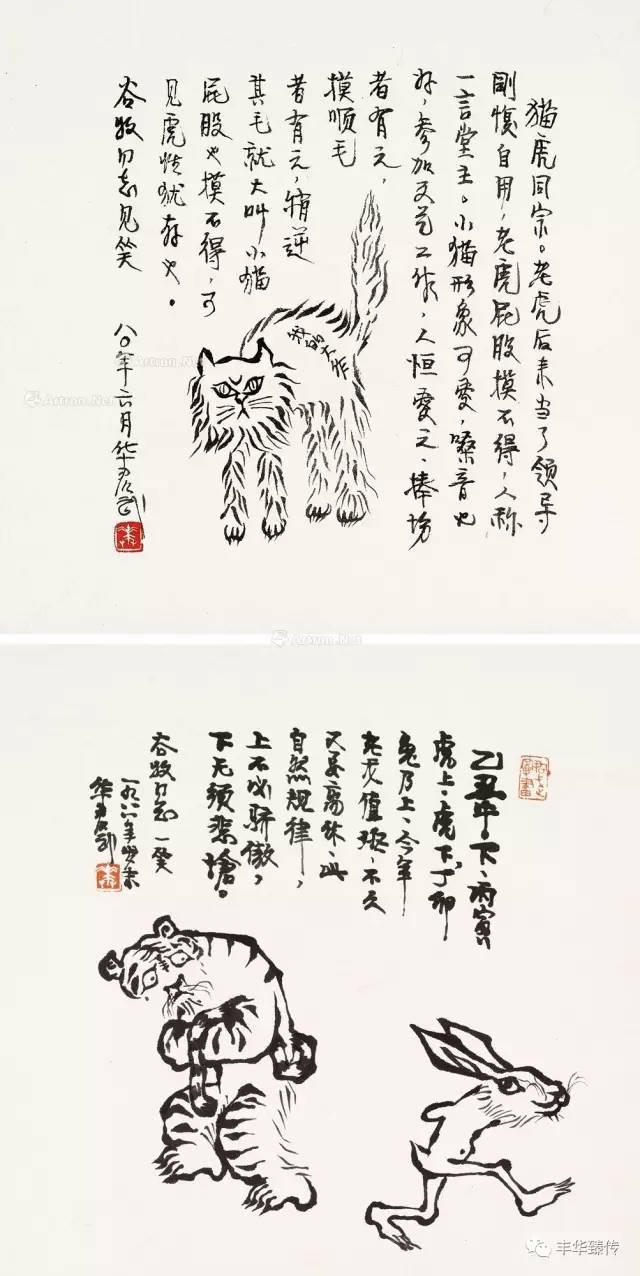 猫虎同宗。老虎后来当了领导
剛愎自用，老虎屁股摸不得，人称
一言堂主。小猫形象可爱，嗓音也
好，参加文艺工作，人恒爱之、捧场
者有之，
摸顺毛
者有之，稍逆
其毛就大叫小猫
屁股也摸不得，可
见虎性犹存也。
谷牧同志见笑
八〇年六月华君武
的大作
Artron.Net
乙丑牛下、丙寅
虎上、虎下、丁卯
兔乃上、今年
老虎值班、不久
又要离休、此
自然规律，
上不必骄傲，
下无须悲怆。
谷牧同志一笑
一九八六年岁末
华君武
丰华臻传